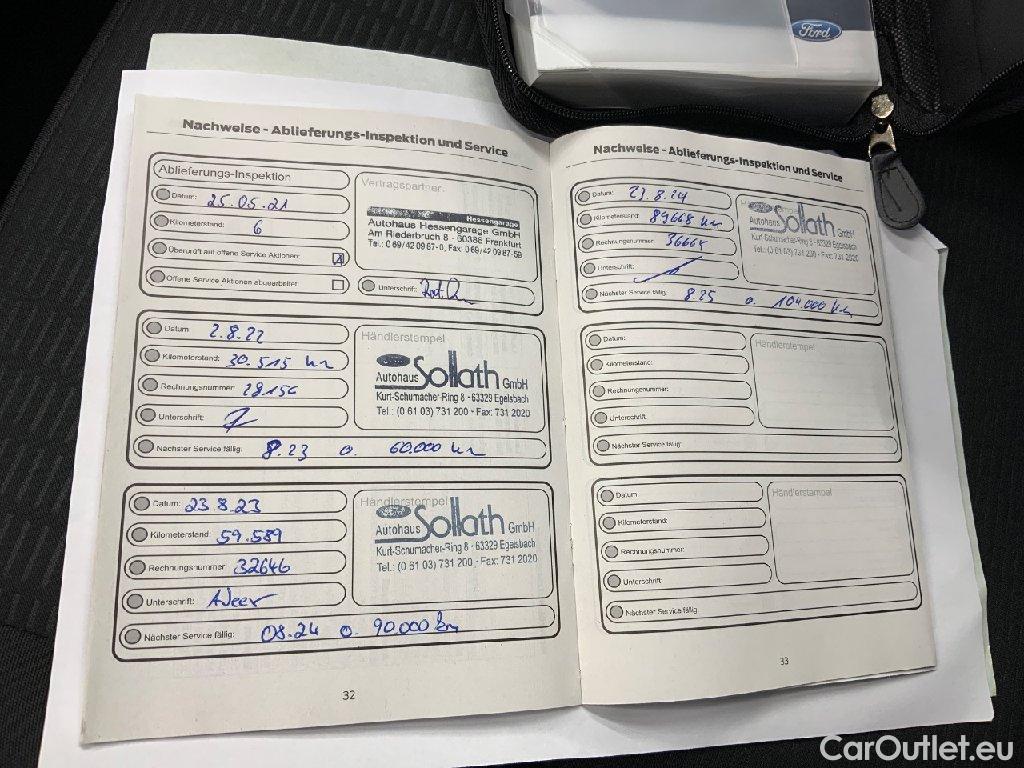 Ford
Nachweise - Ablieferungs-Inspektion und Service
Ablieferungs-Inspektion
Datum: 25.05.21
Kilometerstand: 6
Überprüft auf offene Service Aktionen:
Offene Service Aktionen abgearbeitet:
Vertragspartner:
Hessengarage
Autohaus Hessengarage GmbH
Am Riederbruch 8 - 60386 Frankfurt
Tel.: 069/42 0967-0, Fax 069/42 0967-59
Unterschrift:
Datum: 2.8.22
Kilometerstand: 30.515 km
Rechnungsnummer: 28156
Unterschrift:
Nächster Service fällig: 8.23 o. 60.000 km
Händlerstempel
Ford
Autohaus Sollath GmbH
Kurt-Schumacher-Ring 8 - 63329 Egelsbach
Tel.: (0 61 03) 731 200 - Fax: 731 2020
Datum: 23.8.23
Kilometerstand: 59.589
Rechnungsnummer: 32646
Unterschrift:
Nächster Service fällig: 08.24 o. 90.000 km
Händlerstempel
Ford
Autohaus Sollath GmbH
Kurt-Schumacher-Ring 8 - 63329 Egelsbach
Tel.: (0 61 03) 731 200 - Fax: 731 2020
32
Nachweise - Ablieferungs-Inspektion und Service
Datum: 8.24
Kilometerstand: 89668 km
Rechnungsnummer:
Unterschrift:
Nächster Service fällig: 8.25 o. 104.000 km
Sollath
Kurt-Schumacher-Ring 8 - 63329 Egelsbach
Tel.: (0 61 03) 731 200 - Fax: 731 2020
Datum:
Kilometerstand:
Rechnungsnummer:
Unterschrift:
Nächster Service fällig:
Händlerstempel
Datum:
Kilometerstand:
Rechnungsnummer:
Unterschrift:
Nächster Service fällig:
Händlerstempel
33
CarOutlet.eu